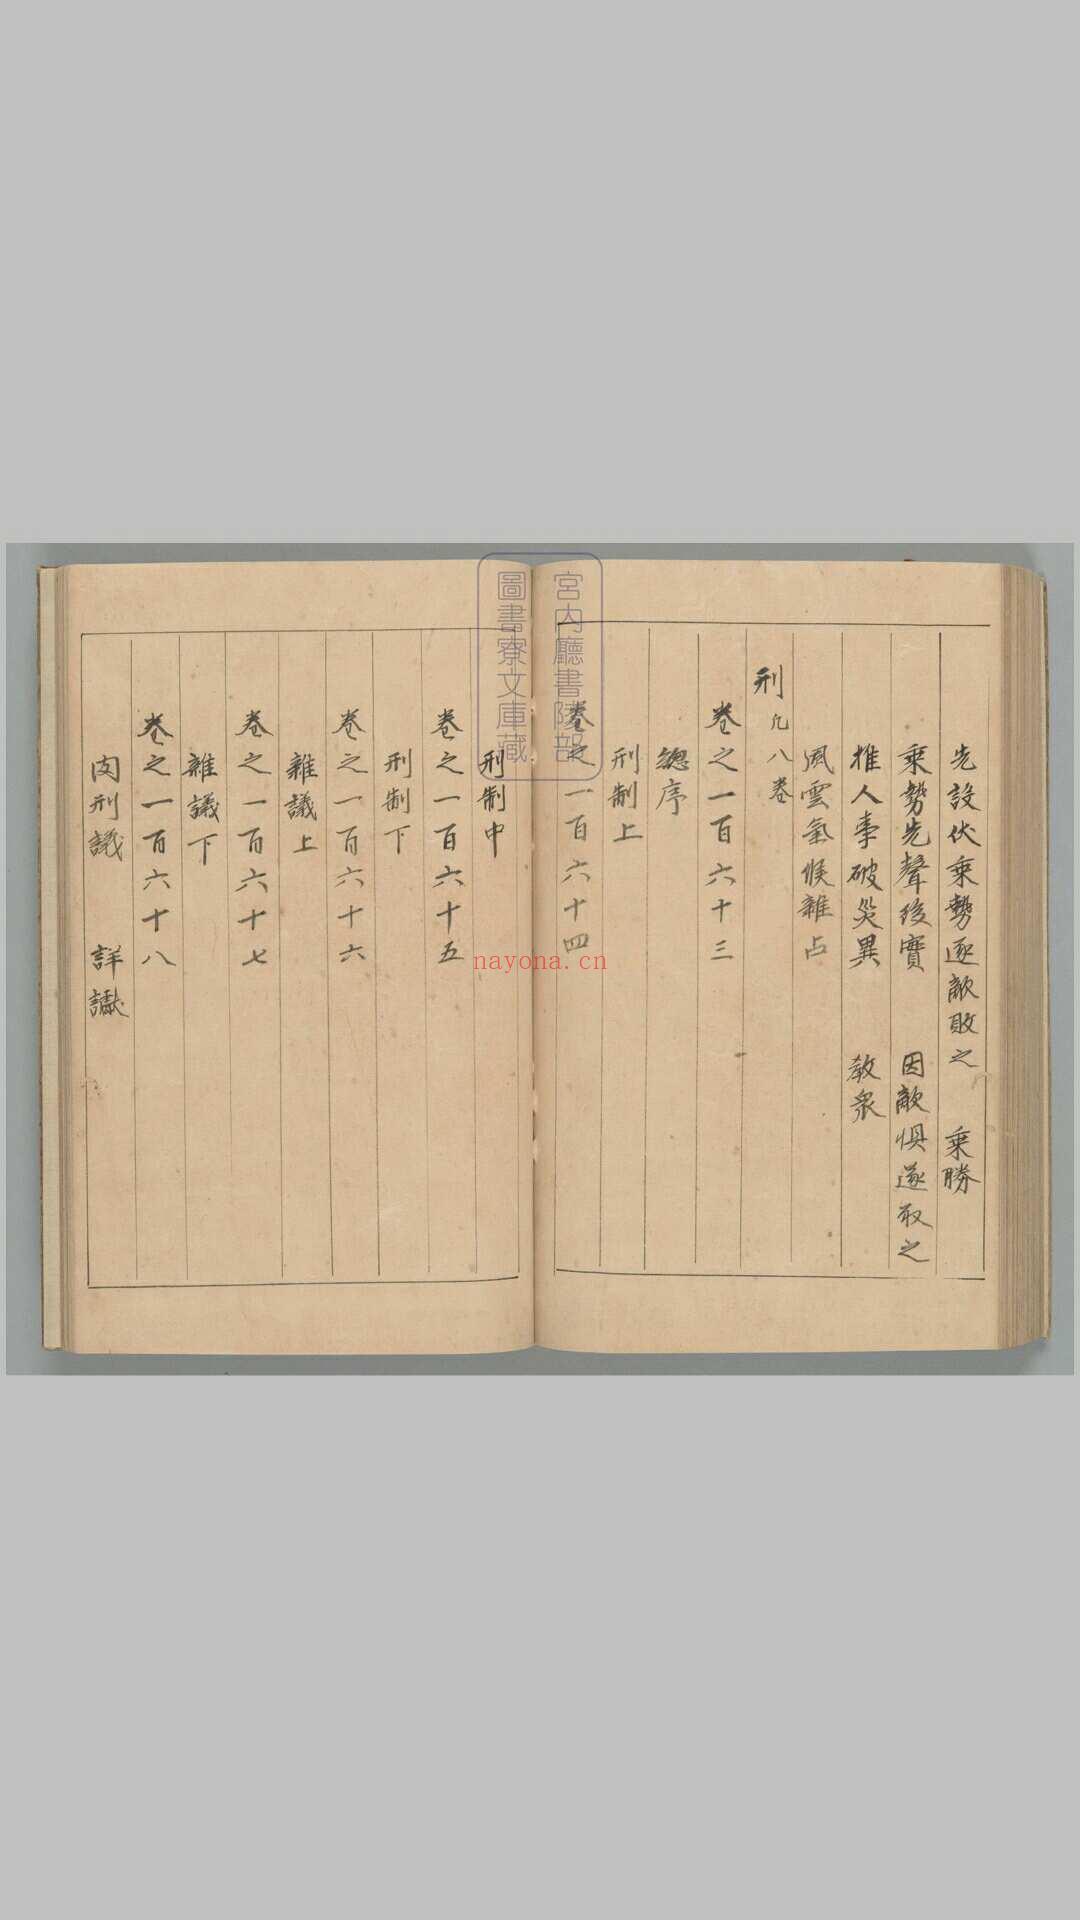 先設伏乘勢逐敵敗之　乘勝
乘勢先聲後實　因敵懼遂取之
推人事破災異　教衆
風雲氣候雜占
刑凡八卷
卷之一百六十三
總序
刑制上
卷之一百六十四
刑制中
卷之一百六十五
刑制下
卷之一百六十六
雜議上
卷之一百六十七
雜議下
卷之一百六十八
肉刑議　詳讞
宮内廳書陵部
圖書寮文庫藏
nayona.cn